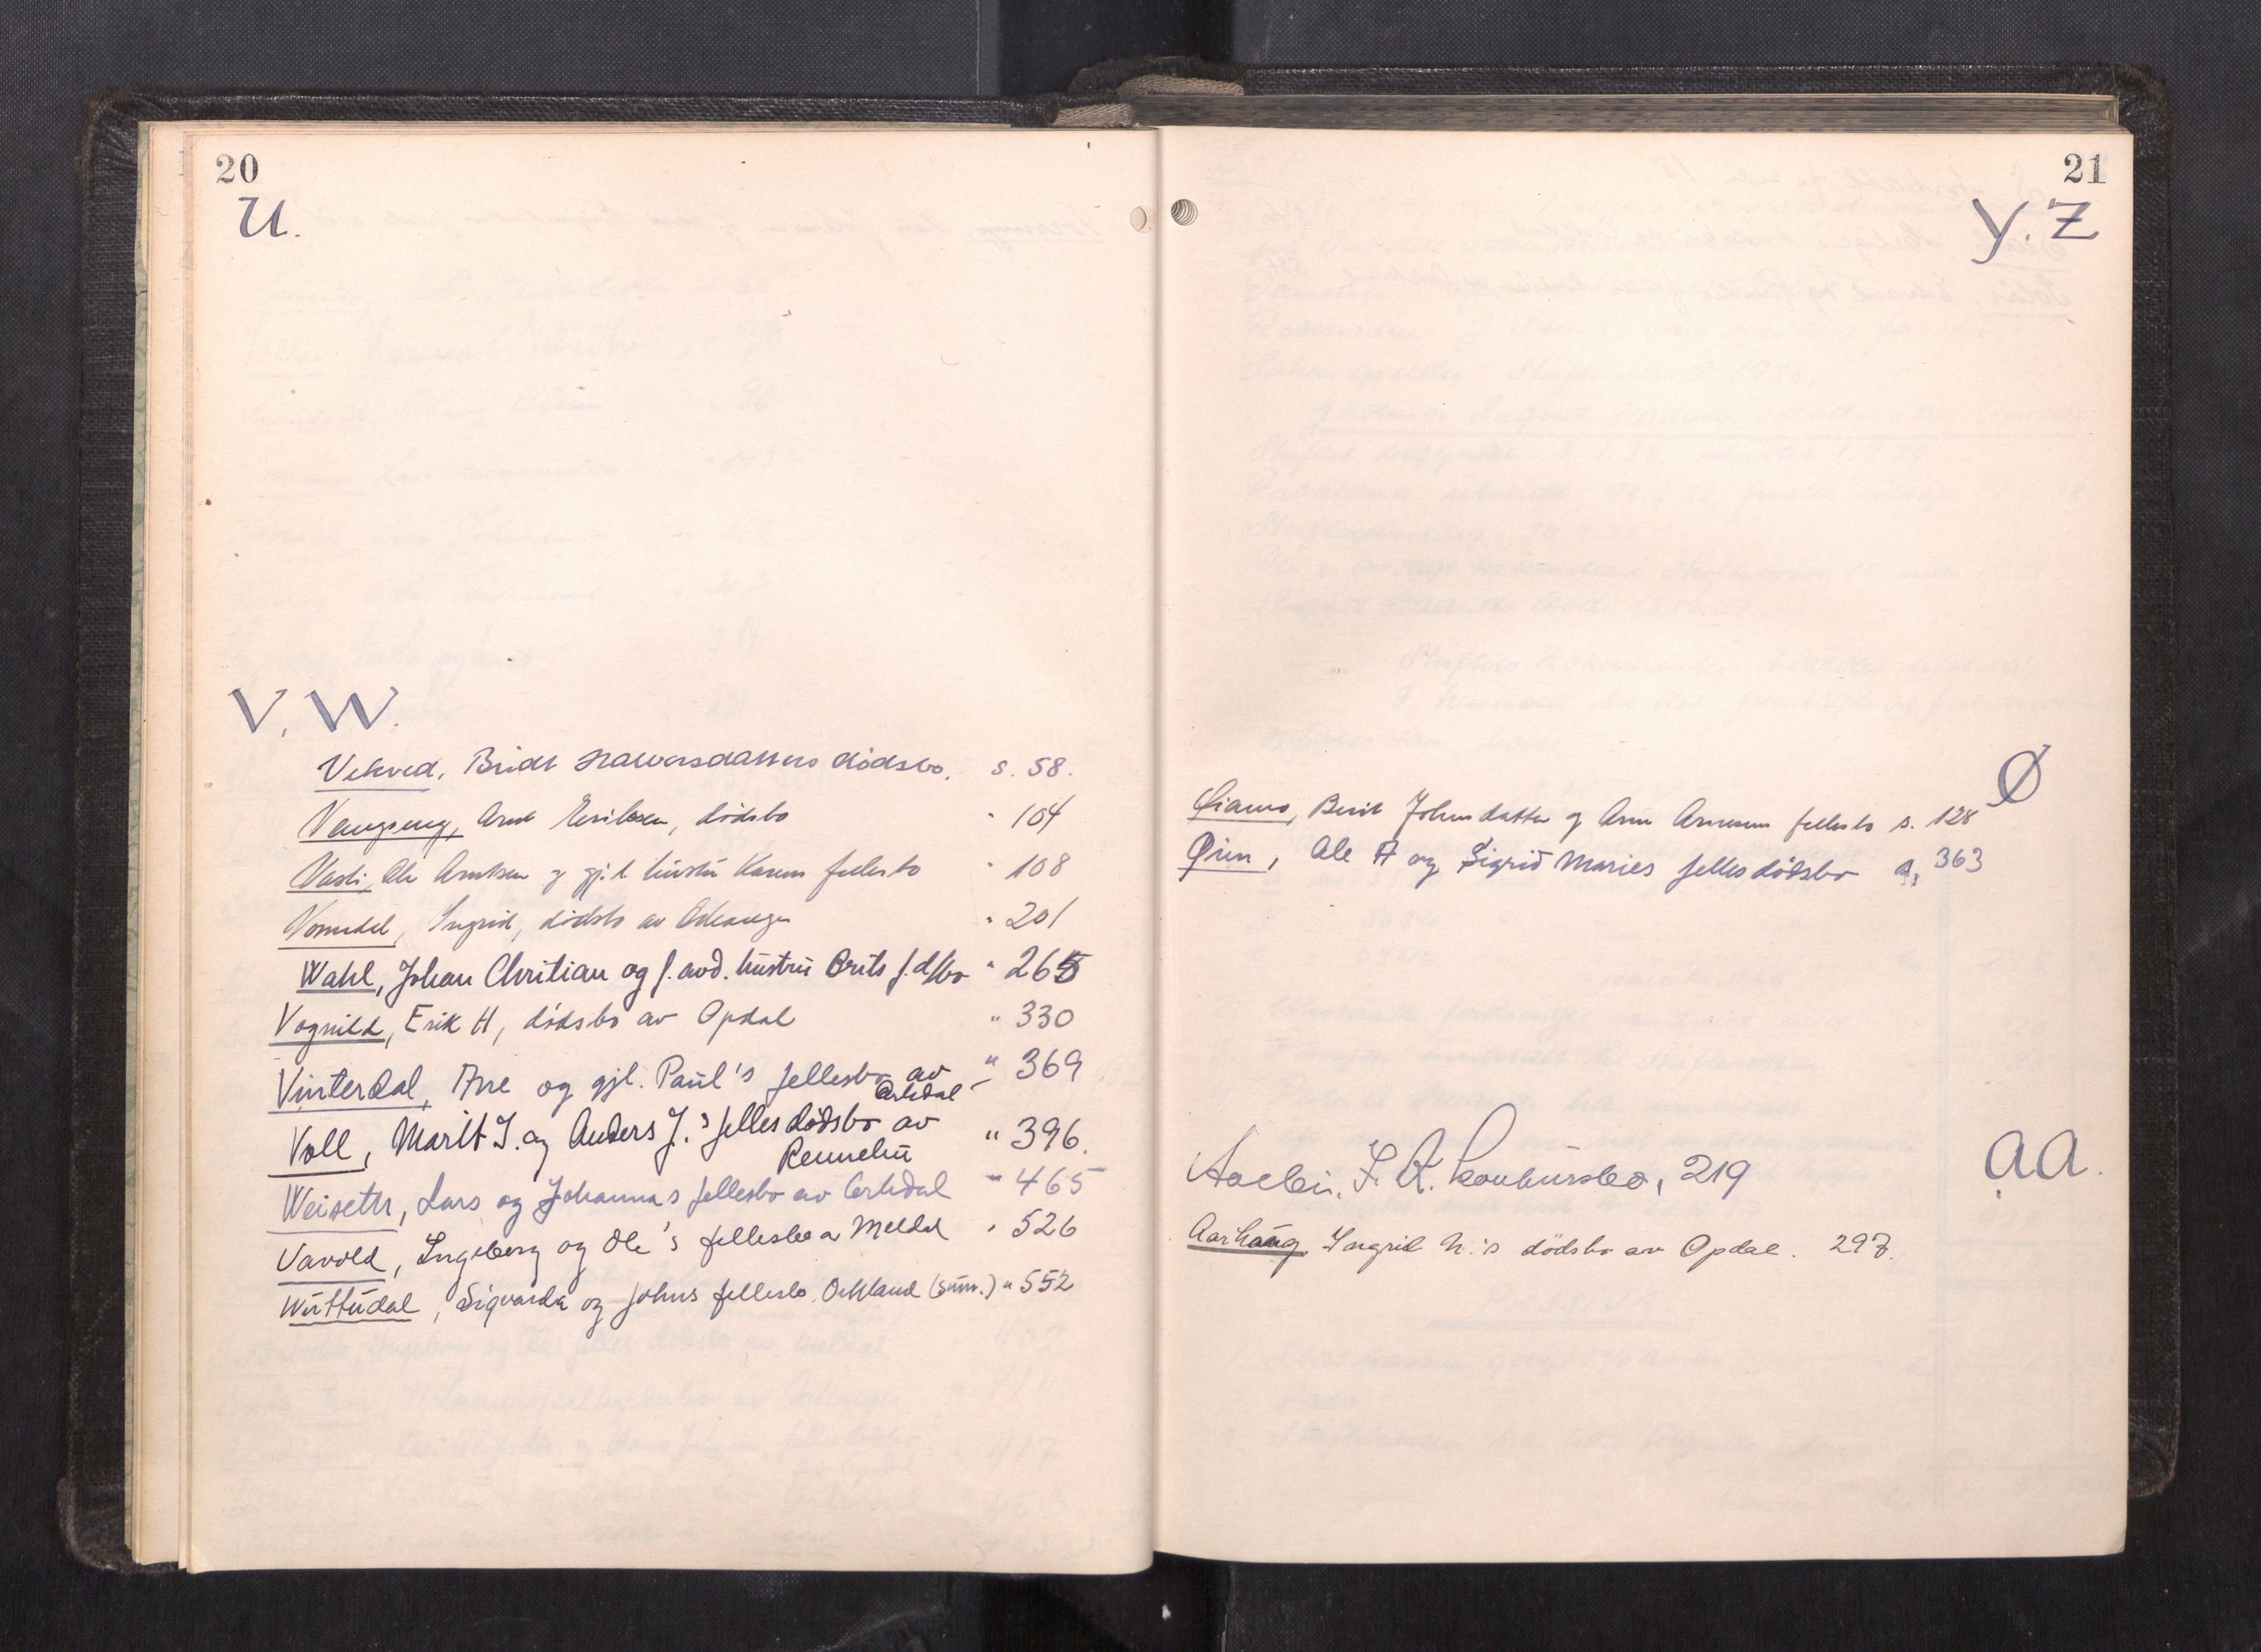 20
U.
V. W.
Vekved, Bridt Halvorsdatters dødsbo. s. 58.
Vangseng, Arnt Eriksen, dødsbo " 104
Vasli, Ole Arntsen og gj.l. hustru Karens fellesbo " 108
Ingrid, dødsbo av Orkanger " 201
Wahl, Johan Chritian og f. avd. hustru Brits f.d/bo " 265
Vognild, Erik H, dødsbo av Opdal " 330
Vinterdal, Ane og gjl. Paul's fellesbo av " 369
Orkdal
Voll, Marit I. og Anders J.'s felles dødsbo av " 396.
Rennebu
Weiseth, Lars og Johannas fellesbo av Orkdal " 465
Vavold, Ingeborg og Ole's fellesbo a Meldal " 526
Wuttudal, Sigvarda og Johns fellesbo Orkland (sum.) " 552
21
Y. Z
Ø
Berit Johnsdatter og Arnesens fellesbo s. 128
Øien, Ole A og Sigrid Maries felles dødsbo s. 363
AA.
konkursbo, 219
Aarhaug, Ingrid N.'s dødsbo av Opdal. 297.